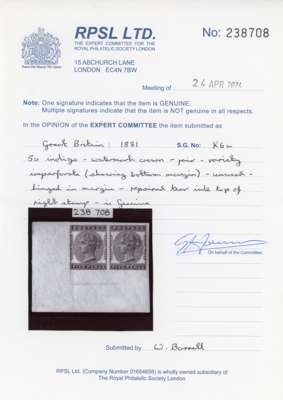 RPSL LTD.
THE EXPERT COMMITTEE FOR THE
ROYAL PHILATELIC SOCIETY LONDON
No 238708
15 ABCHURCH LANE
LONDON EC4N 7BW
Meeting of 24 APR
Note: One signature indicates that the item is GENUINE.
Multiple signatures indicate that the item is NOT genuine in all respects.
In the OPINION of the EXPERT COMMITTEE the item submitted as
Great Britain: 1881 S.G.
5d indigo - watermark crown - pair - variety
imperforate (showing bottom margin) - unused -
hinged in margin - repaired tear into top of
right stamp - is Genuine
238 708
FIVE PENCE FIVE PENCE
On behalf of the Committee
Submitted by W. Barrell
RPSL Ltd. (Company Number 01664698) is wholly owned subsidiary of
The Royal Philatelic Society London